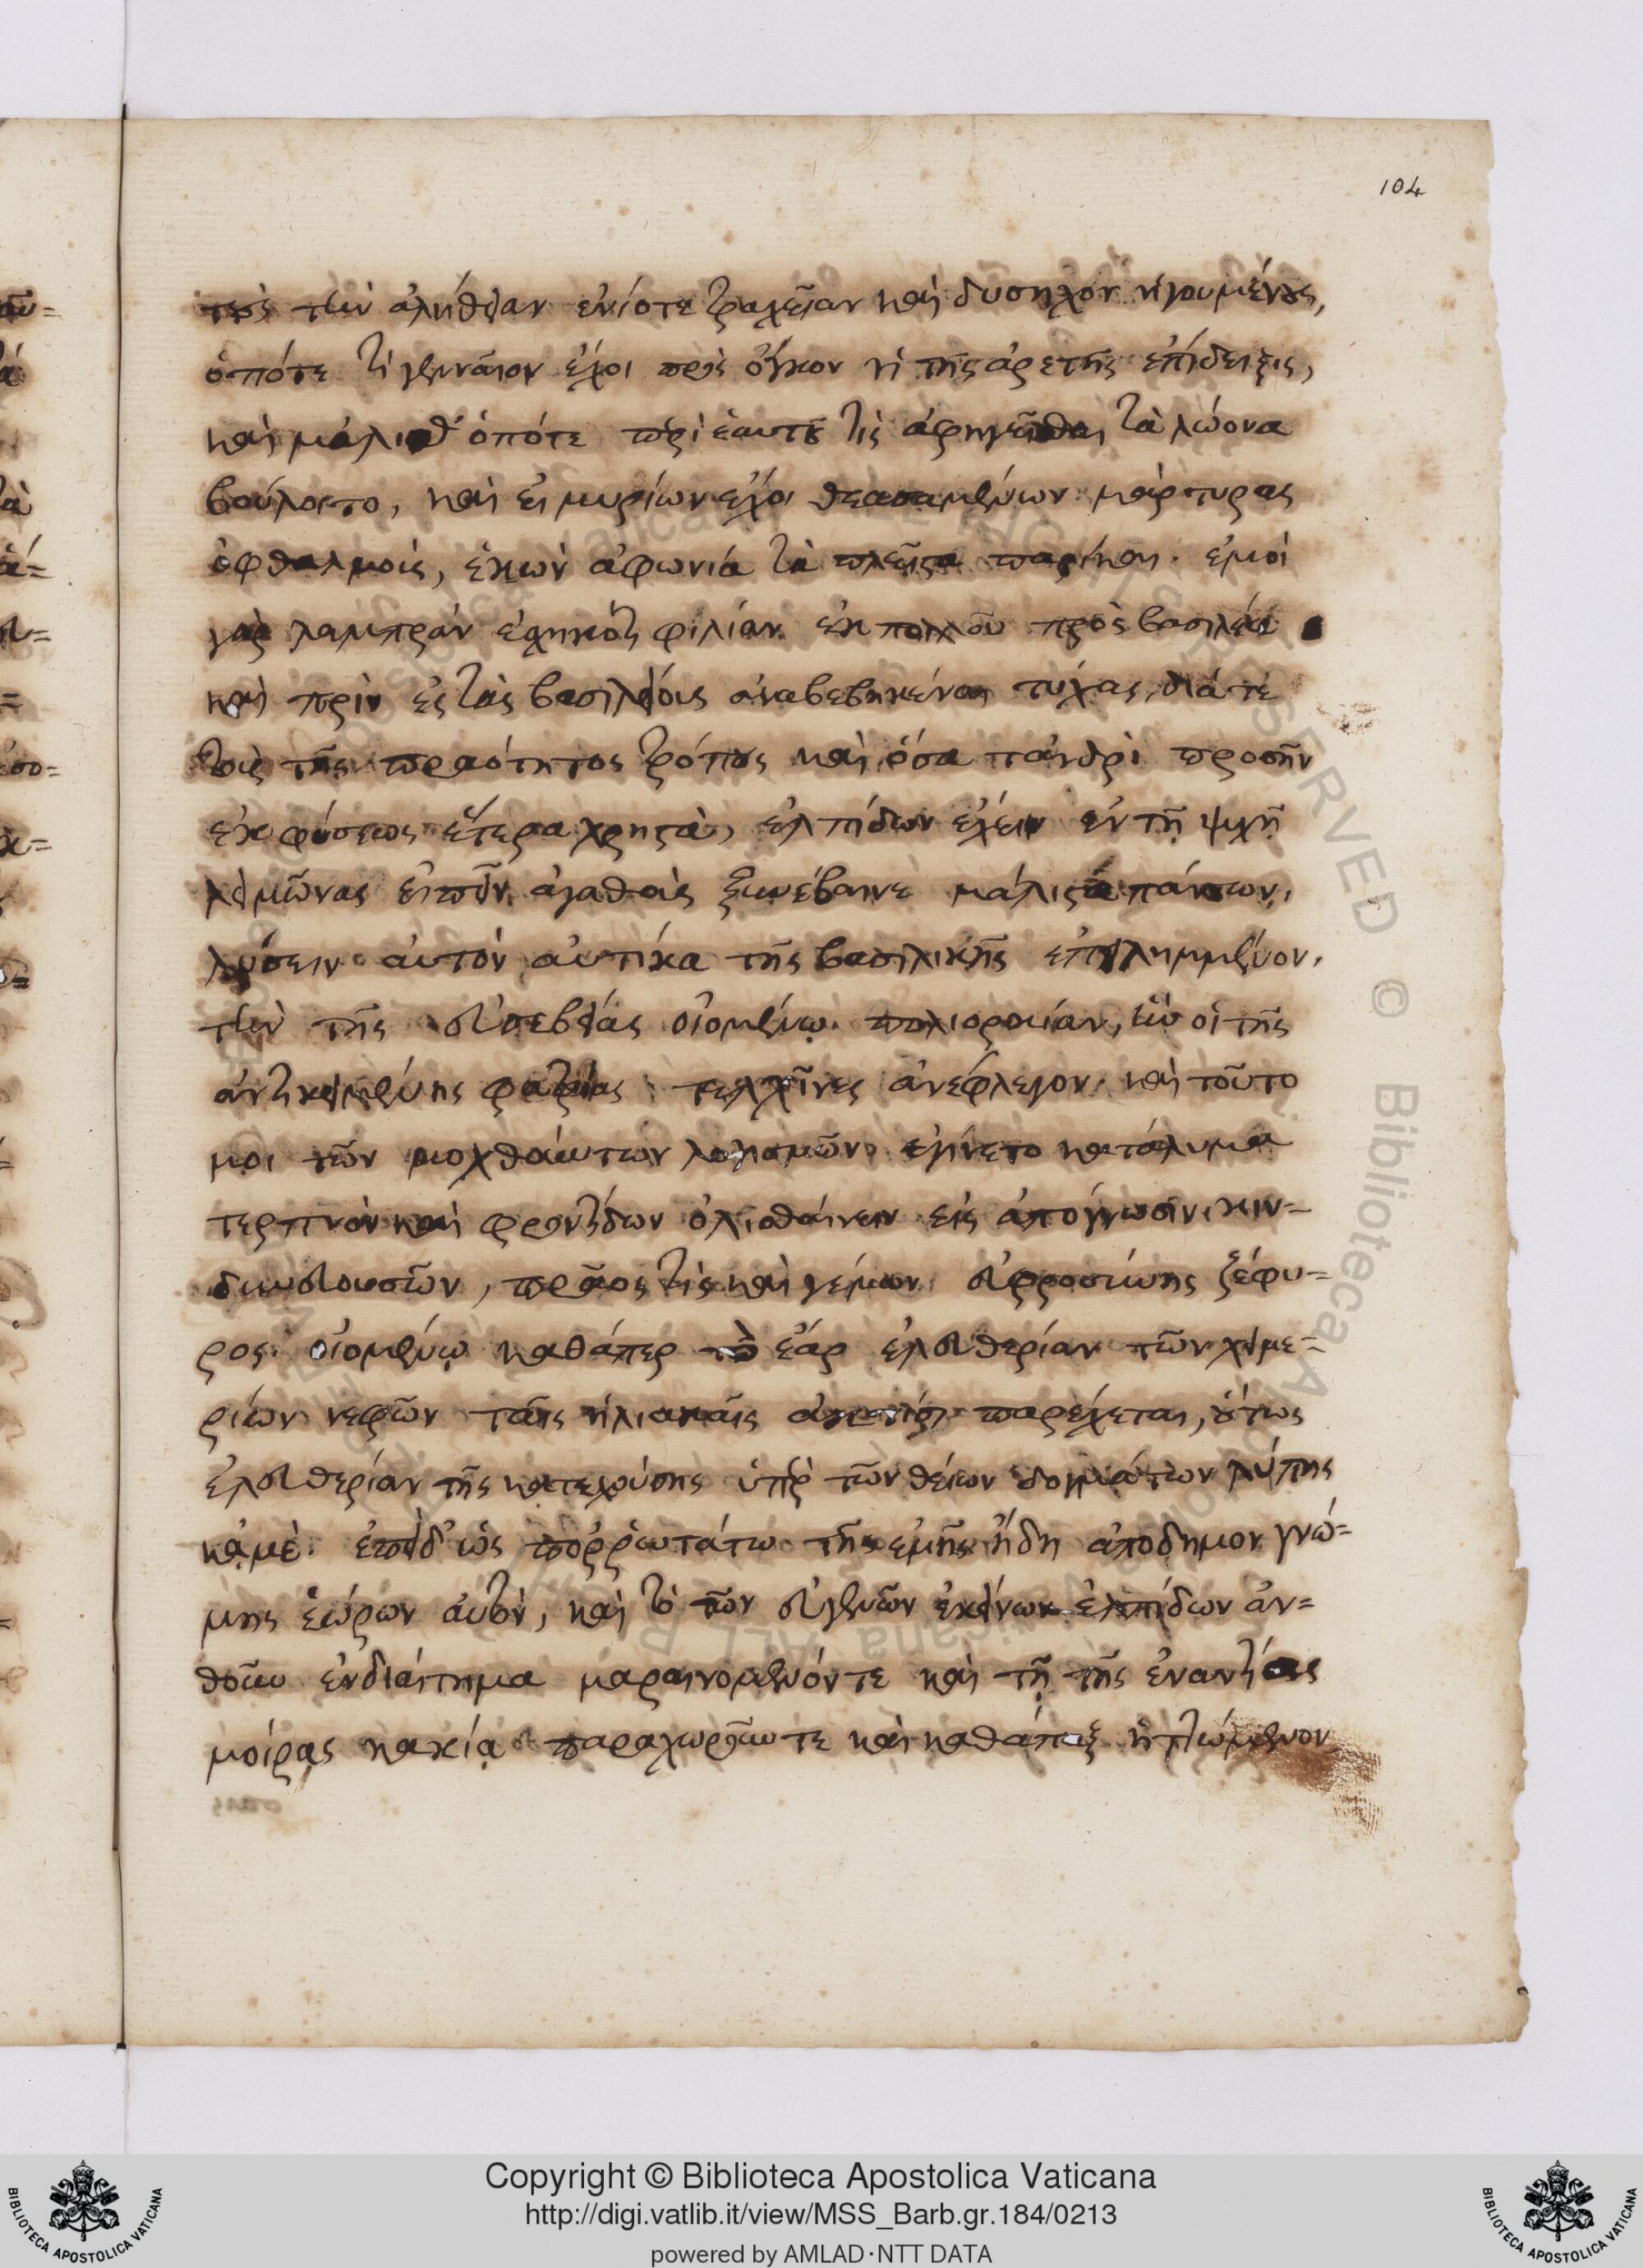 104
τοὺς τὴν ἀλήθειαν ἐνίοτε τραχεῖαν καὶ δυσηχὸν ἡγουμένους,
ὁπότε τι γενναῖον ἔχοι πρὸς ὄγκον ἡ τῆς ἀρετῆς ἐπίδειξις,
καὶ μάλισθ' ὁπότε περὶ ἑαυτοῦ τις ἀφηγεῖσθαι τὰ λώονα
βούλοιτο, καὶ εἰ μυρίων ἔχοι θεασαμένων μάρτυρας
ὀφθαλμοὺς, ἑκὼν ἀφωνία τὰ πλεῖστα παρίησι. ἐμοὶ
γὰρ λαμπρὰν ἐσχηκότι φιλίαν ἐκ πολλοῦ πρὸς βασιλέα
καὶ πρὶν ἐς τὰς βασιλείους ἀναβεβηκέναι τύχας, διά τε
τοὺς τῆς πραότητος τρόπους καὶ ὅσα τἀνδρὶ προσῆν
ἐκ φύσεως ἕτερα χρηστὰ, ἐλπίδων ἔχειν ἐν τῇ ψυχῇ
λειμῶνας εἰπεῖν ἀγαθὰς ξυνέβαινε μάλιστα πάντων,
λύσειν αὐτὸν αὐτίκα τῆς βασιλικῆς ἐπειλημμένον,
τὴν τῆς εὐσεβείας οἰομένῳ πολιορκίαν, ἣν οἱ τῆς
ἀντικειμένης φατρίας τελχῖνες ἀνέφλεγον. καὶ τοῦτό
μοι τῶν μοχθούντων λογισμῶν ἐγίνετο κατάλυμα
τερπνὸν καὶ φροντίδων ὀλισθαίνειν εἰς ἀπόγνωσιν κιν-
δυνευουσῶν, πρᾶος τὶς καὶ γέμων εὐφροσύνης ζέφυ-
ρος. οἰομένῳ καθάπερ τὸ ἔαρ ἐλευθερίαν τῶν χειμε-
ρίων νεφῶν ταῖς ἡλιακαῖς ἀκτῖσι παρέχεται, οὕτως
ἐλευθερίαν τῆς κατεχούσης ὑπὲρ τῶν θείων δογμάτων λύπης
κᾀμέ. ἐπεὶ δ' ὡς ποῤῥωτάτω τῆς ἐμῆς ἤδη ἀπόδημον γνώ-
μης ἑώρων αὐτὸν, καὶ τὸ τῶν εὐγενῶν ἐκείνων ἐλπίδων ἀν-
θοῦν ἐνδιαίτημα μαραινόμενόν τε καὶ τῇ τῆς ἐναντίας
μοίρας κακίᾳ παραχωροῦν τε καὶ καθάπαξ ἡττώμενον